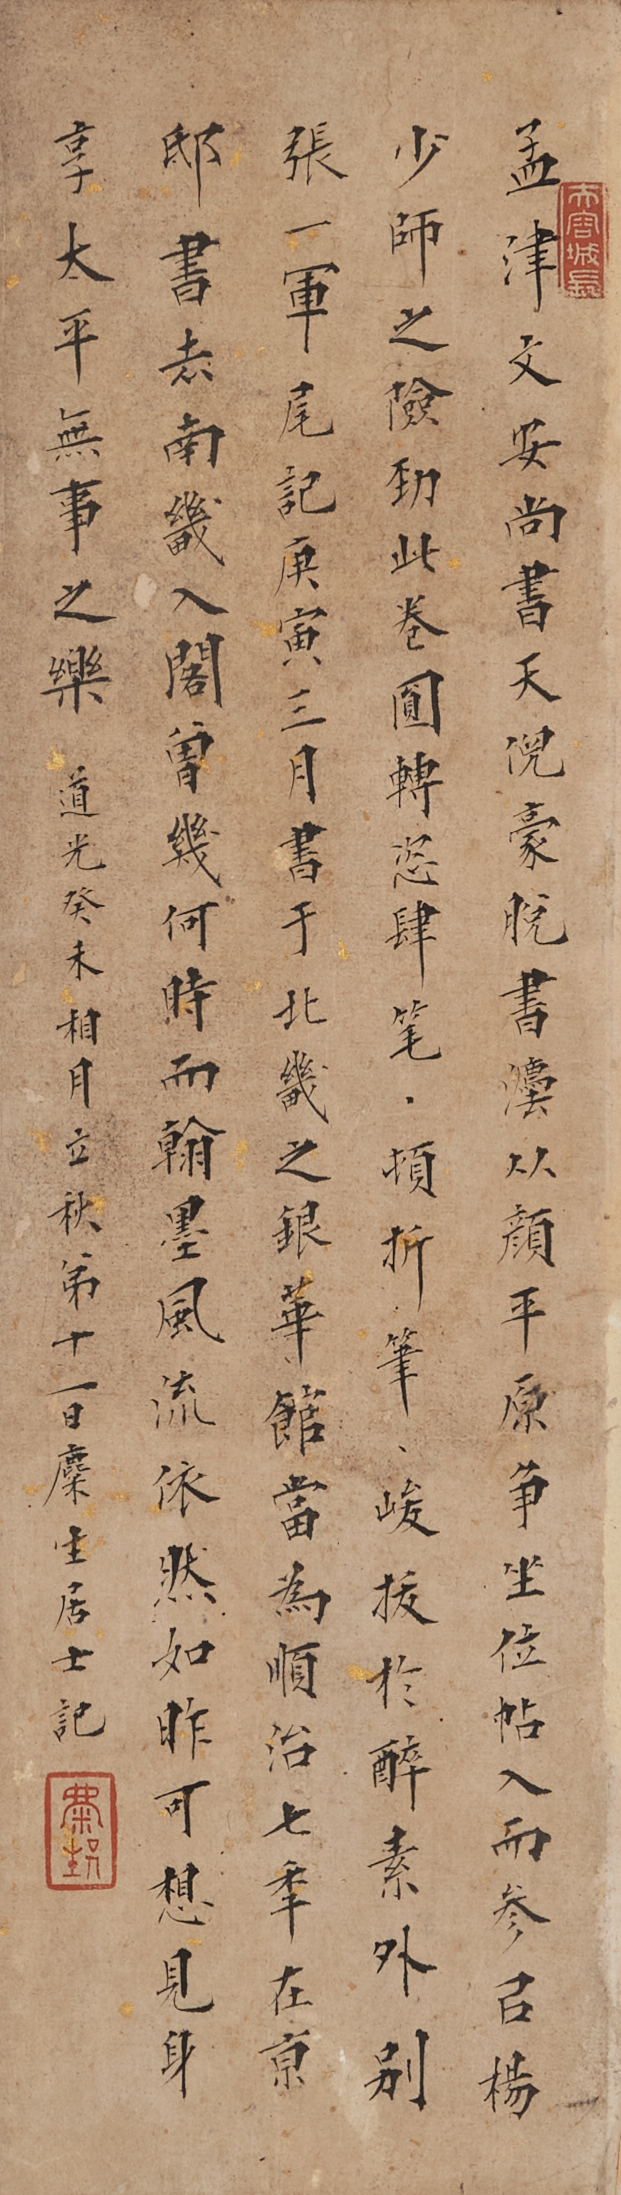 孟津文安尚書天倪豪脫書灋从顏平原争坐位帖入而参召楊
少師之險勁此卷圓轉恣肆笔、頓折筆、峻拔於醉素外别
張一軍尾記庚寅三月書于北畿之銀華館當為順治七秊在京
邸書去南畿入閣曾幾何時而翰墨風流依然如昨可想見身
享太平無事之樂 道光癸未相月立秋第十一日麋生居士記